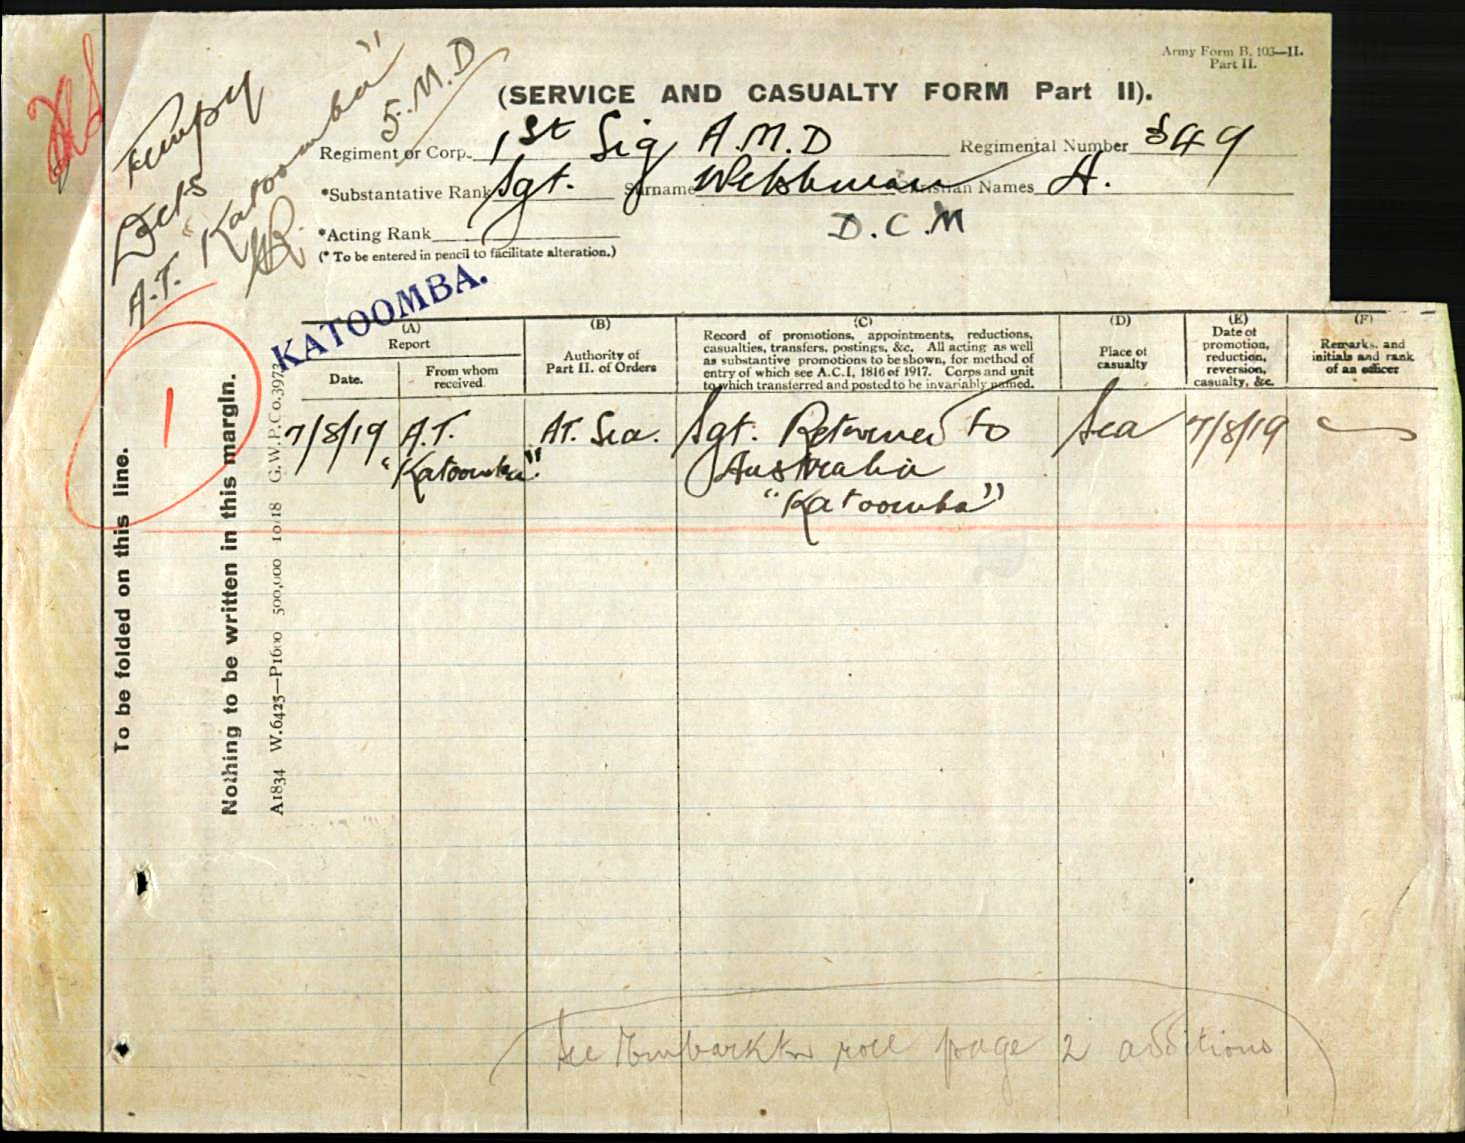 Army Form B. 103—II.
Part II.
(SERVICE AND CASUALTY FORM Part II).
5. M. D
Regiment or Corp. 1st Sig A.M.D Regimental Number 549
*Substantative Rank Sgt. Surname Welshman Christian Names A.
D.C.M
*Acting Rank
(* To be entered in pencil to facilitate alteration.)
Dets
A.T. "Katoomba"
KATOOMBA.
1
To be folded on this line.
Nothing to be written in this margin.
A1834 W.6425—P1600 500,000 10/18 G.W.P.Co.3973
(A)
Report
Date.
From whom
received.
(B)
Authority of
Part II. of Orders
(C)
Record of promotions, appointments, reductions,
casualties, transfers, postings, &c. All acting as well
as substantive promotions to be shown, for method of
entry of which see A.C.I, 1816 of 1917. Corps and unit
to which transferred and posted to be invariably named.
(D)
Place of
casualty
(E)
Date of
promotion,
reduction,
reversion,
casualty, &c.
(F)
Remarks. and
initials and rank
of an officer
7/8/19 A.T. AT. Sea. Sgt. Returned to Sea 7/8/19
"Katoomba" Australia
"Katoomba"
See Embarktn roll page 2 additions